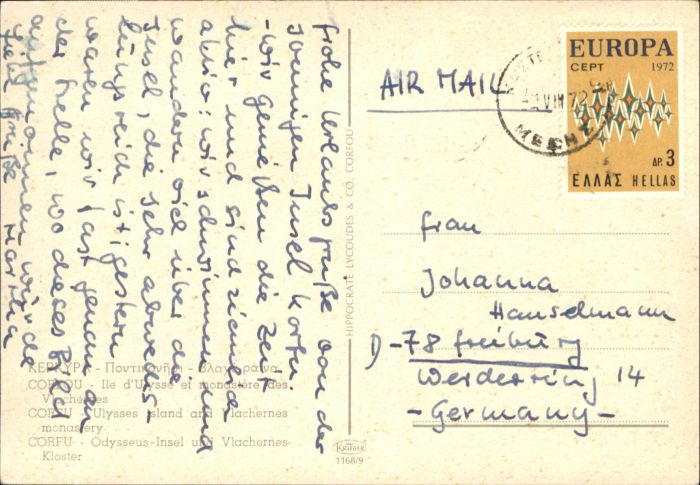 Frohe Urlaubsgrüße von der
sonnigen Insel Korfu.
- wir genießen die Zeit
hier und sind ziemlich
aktiv: wir schwimmen und
wandern viel über die
Insel, die sehr abwechs-
lungsreich ist; gestern
waren wir fast genau an
der Stelle, wo dieses Bild
aufgenommen wurde.
Viele Grüße Martina
ΚΕΡΚΥΡΑ - Ποντικονήσι - Βλαχέραινα
CORFOU - Ile d'Ulysse et monastère des
Vlachernes
CORFU - Ulysses island and Vlachernes
monastery
CORFU - Odysseus-Insel und Vlachernes-
Kloster
HIPPOCRATE LYCOUDES & CO. CORFOU
KRÜGER
1168/9
AIR MAIL
VIII 72
EUROPA
CEPT 1972
ΔΡ. 3
ΕΛΛΑΣ HELLAS
Frau
Johanna
Hanselmann
D-78 Freiburg
Werderring 14
-Germany-